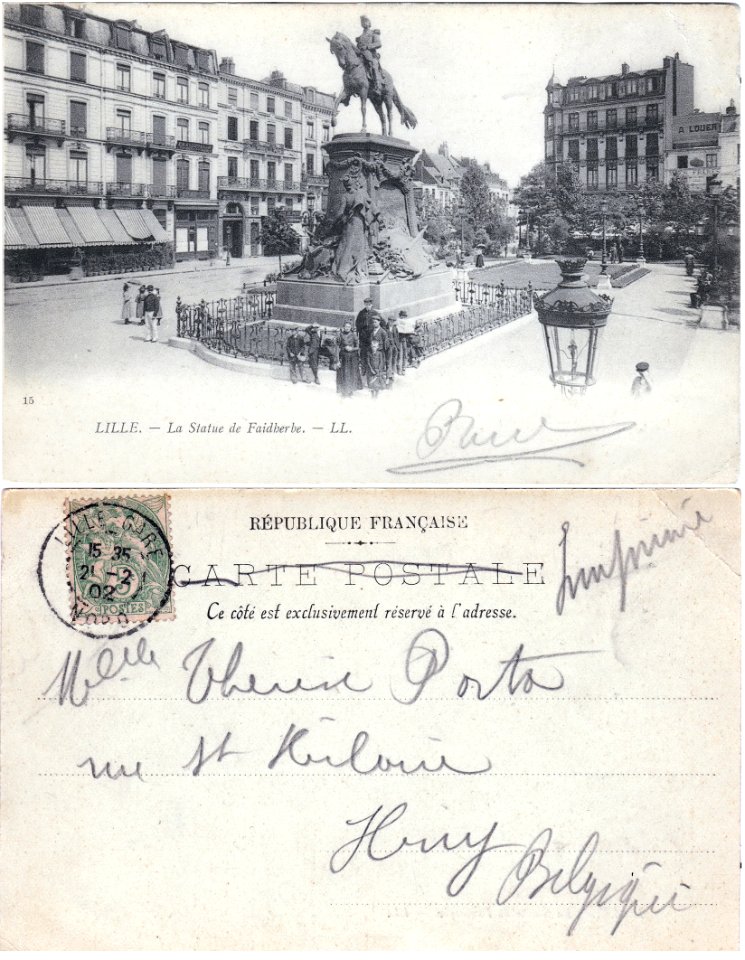 A LOUER
15
LILLE. — La Statue de Faidherbe. — LL.
LILLE-GARE
15 35
21 -2
02
NORD
5
POSTES
RÉPUBLIQUE FRANÇAISE
CARTE POSTALE
Imprimé
Ce côté est exclusivement réservé à l'adresse.
Melle Therese Porta
rue St Hilaire
Huy
Belgique